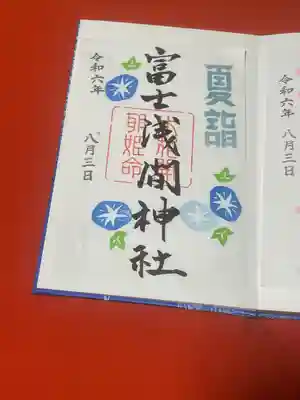 令和六年
八月三日
夏詣
富士浅間神社
令和六年
八月三日